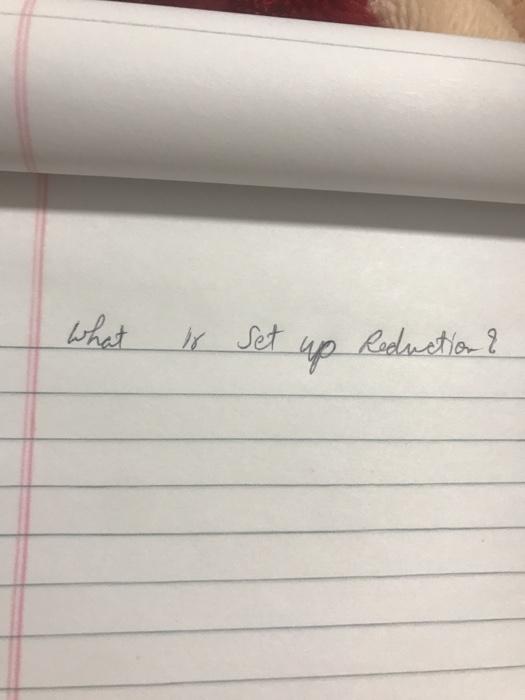 What is Set up Reduction?